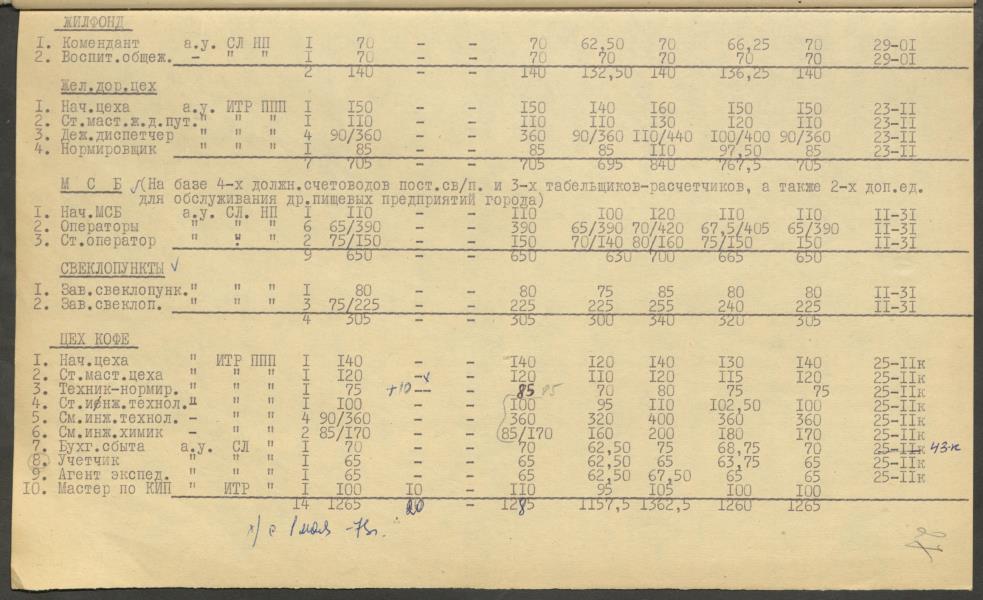 ЖИЛФОНД
I. Комендант а.у. СЛ НП I 70 - - 70 62,50 70 66,25 70 29-0I
2. Воспит.общеж. - " " I 70 - - 70 70 70 70 70 29-0I
2 I40 - - I40 I32,50 I40 I36,25 I40
Жел.дор.цех
I. Нач.цеха а.у. ИТР ППП I I50 - - I50 I40 I60 I50 I50 23-II
2. Ст.маст.ж.д.пут." " " I II0 - - II0 II0 I30 I20 II0 23-II
3. Деж.диспетчер " " " 4 90/360 - - 360 90/360 II0/440 I00/400 90/360 23-II
4. Нормировщик " " " I 85 - - 85 85 II0 97,50 85 23-II
7 705 - - 705 695 840 767,5 705
М С Б √(На базе 4-х должн.счетоводов пост.св/п. и 3-х табельщиков-расчетчиков, а также 2-х доп.ед.
для обслуживания др.пищевых предприятий города)
I. Нач.МСБ а.у. СЛ. НП I II0 - - II0 I00 I20 II0 II0 II-3I
2. Операторы " " " 6 65/390 - - 390 65/390 70/420 67,5/405 65/390 II-3I
3. Ст.оператор " " " 2 75/I50 - - I50 70/I40 80/I60 75/I50 I50 II-3I
9 650 - - 650 630 700 665 650
СВЕКЛОПУНКТЫ √
I. Зав.свеклопунк." " " I 80 - - 80 75 85 80 80 II-3I
2. Зав.свеклоп. " " " 3 75/225 - - 225 225 255 240 225 II-3I
4 305 - - 305 300 340 320 305
ЦЕХ КОФЕ
I. Нач.цеха " ИТР ППП I I40 - - I40 I20 I40 I30 I40 25-IIк
2. Ст.маст.цеха " " " I I20 - х - I20 II0 I20 II5 I20 25-IIк
3. Техник-нормир. " " " I 75 +10 - - 85 85 70 80 75 75 25-IIк
4. Ст.инж.технол." " " I I00 - - I00 95 II0 I02,50 I00 25-IIк
5. См.инж.технол. - " " 4 90/360 - - 360 320 400 360 360 25-IIк
6. См.инж.химик - " " 2 85/I70 - - 85/I70 I60 200 I80 I70 25-IIк
7. Бухг.сбыта а.у. СЛ " I 70 - - 70 62,50 75 68,75 70 25-IIк 43-к
8. Учетчик " " " I 65 - - 65 62,50 65 63,75 65 25-IIк
9. Агент экспед. " " " I 65 - - 65 62,50 67,50 65 65 25-IIк
I0. Мастер по КИП " ИТР " I I00 I0 - II0 95 I05 I00 I00
I4 I265 20 - I285 II57,5 I362,5 I260 I265
х/ с 1 мая -73г.